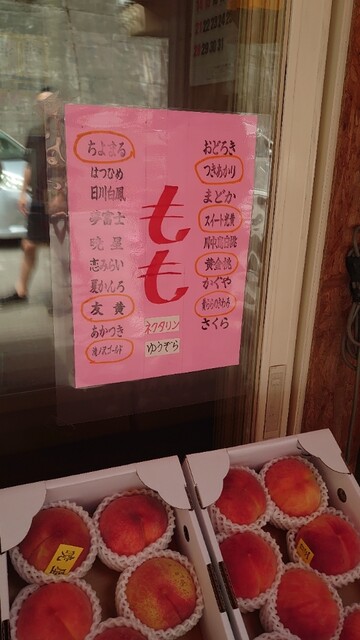 もも
ちよまる
はつひめ
日川白鳳
夢富士
暁星
志みらい
夏かんろ
友黄
あかつき
滝ノ沢ゴールド
ネクタリン
ゆうぞら
おどろき
つきあかり
まどか
スイート光黄
川中島白桃
黄金桃
かぐや
さくら